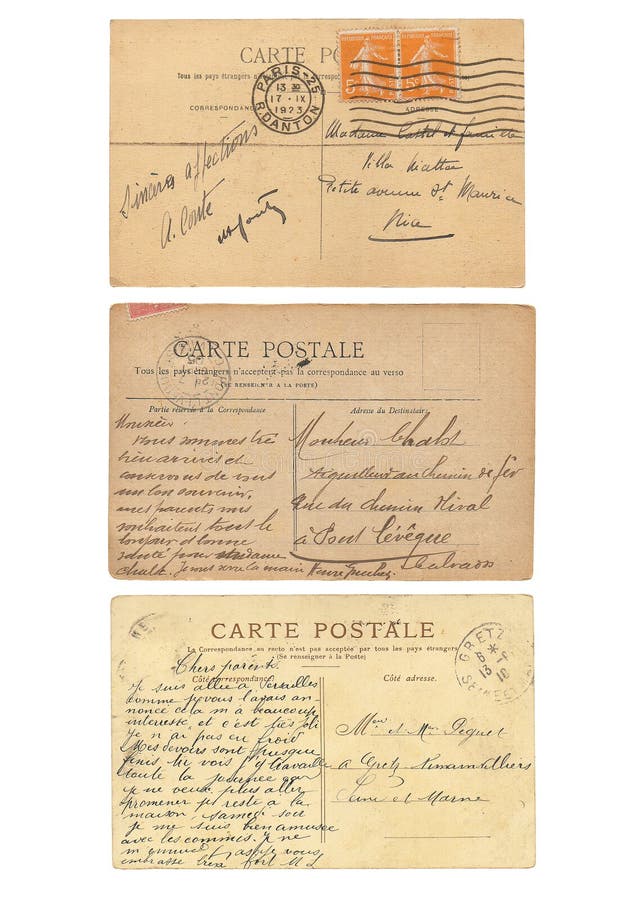 CARTE PO
Tous les pays étrangers n'acceptent
CORRESPONDANCE
ADRESSE
PARIS-25
13 30
17·IX
1923
R.DANTON
REPUBLIQUE FRANCAISE
5c
REPUBLIQUE FRANCAISE
5c
Sincères affections
A. Conte
Madame Castel et famille
Villa
Petite avenue St Maurice
Nice
CARTE POSTALE
Tous les pays étrangers n'acceptent pas la correspondance au verso
(SE RENSEIGNER A LA POSTE)
Partie réservée à la Correspondance
Adresse du Destinataire
Monsieur
Nous sommes très
bien arrivés et
conservons de vous
un bon souvenir,
mes parents vous
souhaitent tout le
bonjour et bonne
santé pour Madame
Chalot. Je vous serre la main Henri
Monsieur Chalot
Aiguilleur au Chemin de fer
Rue du Chemin Nival
à Pont l'évêque
Calvados
CARTE POSTALE
La Correspondance au recto n'est pas acceptée par tous les pays étrangers
(Se renseigner à la Poste)
Côté correspondance.
Côté adresse.
GRETZ
Chers parents
Je suis allée à Versailles
comme je vous l'avais an-
noncé cela m'a beaucoup
interessée et c'est très joli
Je n'ai pas eu froid
Mes devoirs sont presque
finis
toute la journée car
je ne veux plus aller
promener je reste à la
maison. Samedi soir
je me suis bien amusée
avec les Je ne
m'ennuie pas je vous
embrasse bien fort M L
Mr et Mme Piquet
à Gretz Armainvilliers
Seine et Marne